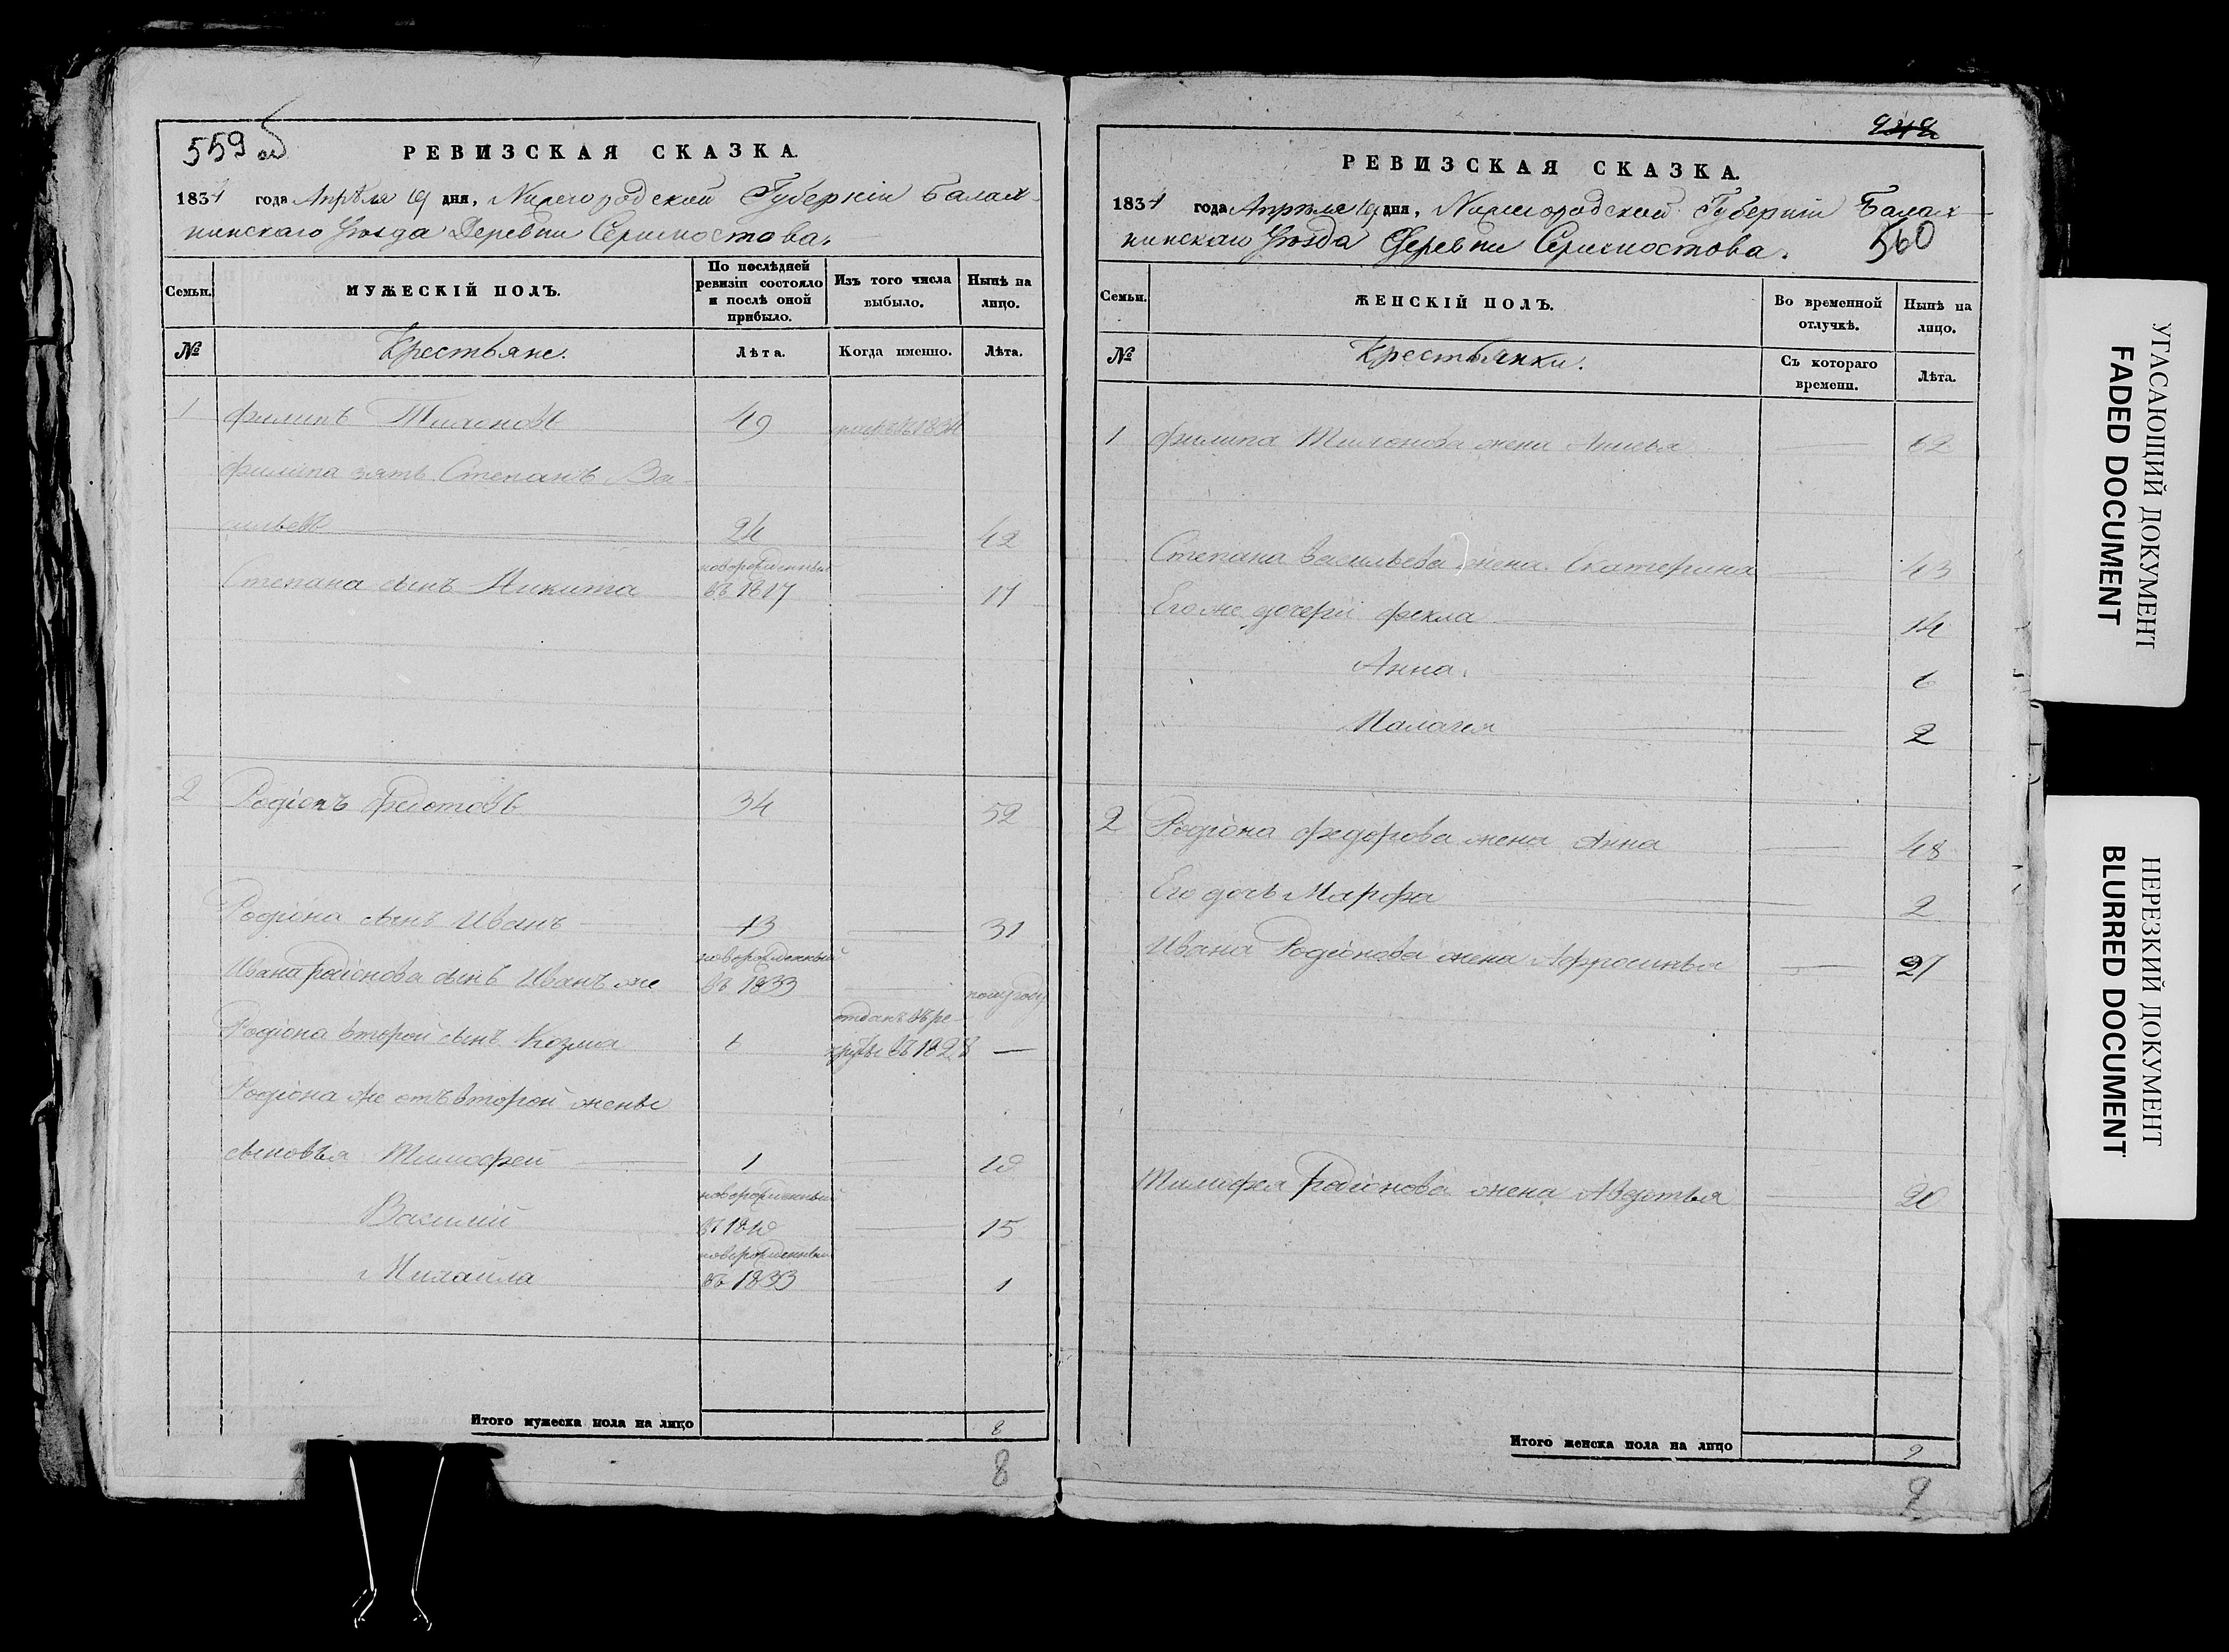 559 об
РЕВИЗСКАЯ СКАЗКА.
1834 года Апрѣля 19 дня, Нижегородской Губерніи Балах-
нинскаго Уѣзда Деревни
Семьи.
МУЖЕСКІЙ ПОЛЪ.
По послѣдней
ревизіи состояло
и послѣ оной
прибыло.
Изъ того числа
выбыло.
Нынѣ на
лицо.
№
Крестьяне.
Лѣта.
Когда именно.
Лѣта.
1 Филипъ Тихоновъ 49 1834
Филипа зять Степанъ Ва-
сильевъ 24 42
новорожденный
Степана сынъ Никита въ 1817 17
2 Родіонъ Федотовъ 34 52
Родіона сынъ Иванъ 13 31
новорожденный
Ивана Родіонова сынъ Иванъ же въ 1833 полугоду
отданъ въ ре-
Родіона второй сынъ Козма 6 круты въ 1828 —
Родіона же отъ второй жены
сыновья Тимофей 1 19
новорожденный
Василий 15
новорожденный
Михаила въ 1833 1
Итого мужеска пола на лицо 8
8
РЕВИЗСКАЯ СКАЗКА.
1834 года Апрѣля 19 дня, Нижегородской Губерніи Балах-
нинскаго Уѣзда Деревни
560
Семьи.
ЖЕНСКІЙ ПОЛЪ.
Во временной
отлучкѣ.
Нынѣ на
лицо.
№
Крестьянки.
Съ котораго
времени.
Лѣта.
1 Филипа Тихонова жена Анисья 62
Степана Васильева жена Екатерина 43
Его же дочери Фекла 14
Анна. 6
Палагея 2
2 Родіона Федорова жена Анна 48
Его дочь Марфа 2
Ивана Родіонова жена Афросинья 27
Тимофея Родіонова жена Авдотья 20
Итого женска пола на лицо 9
9
УГАСАЮЩИЙ ДОКУМЕНТ
FADED DOCUMENT
НЕРЕЗКИЙ ДОКУМЕНТ
BLURRED DOCUMENT